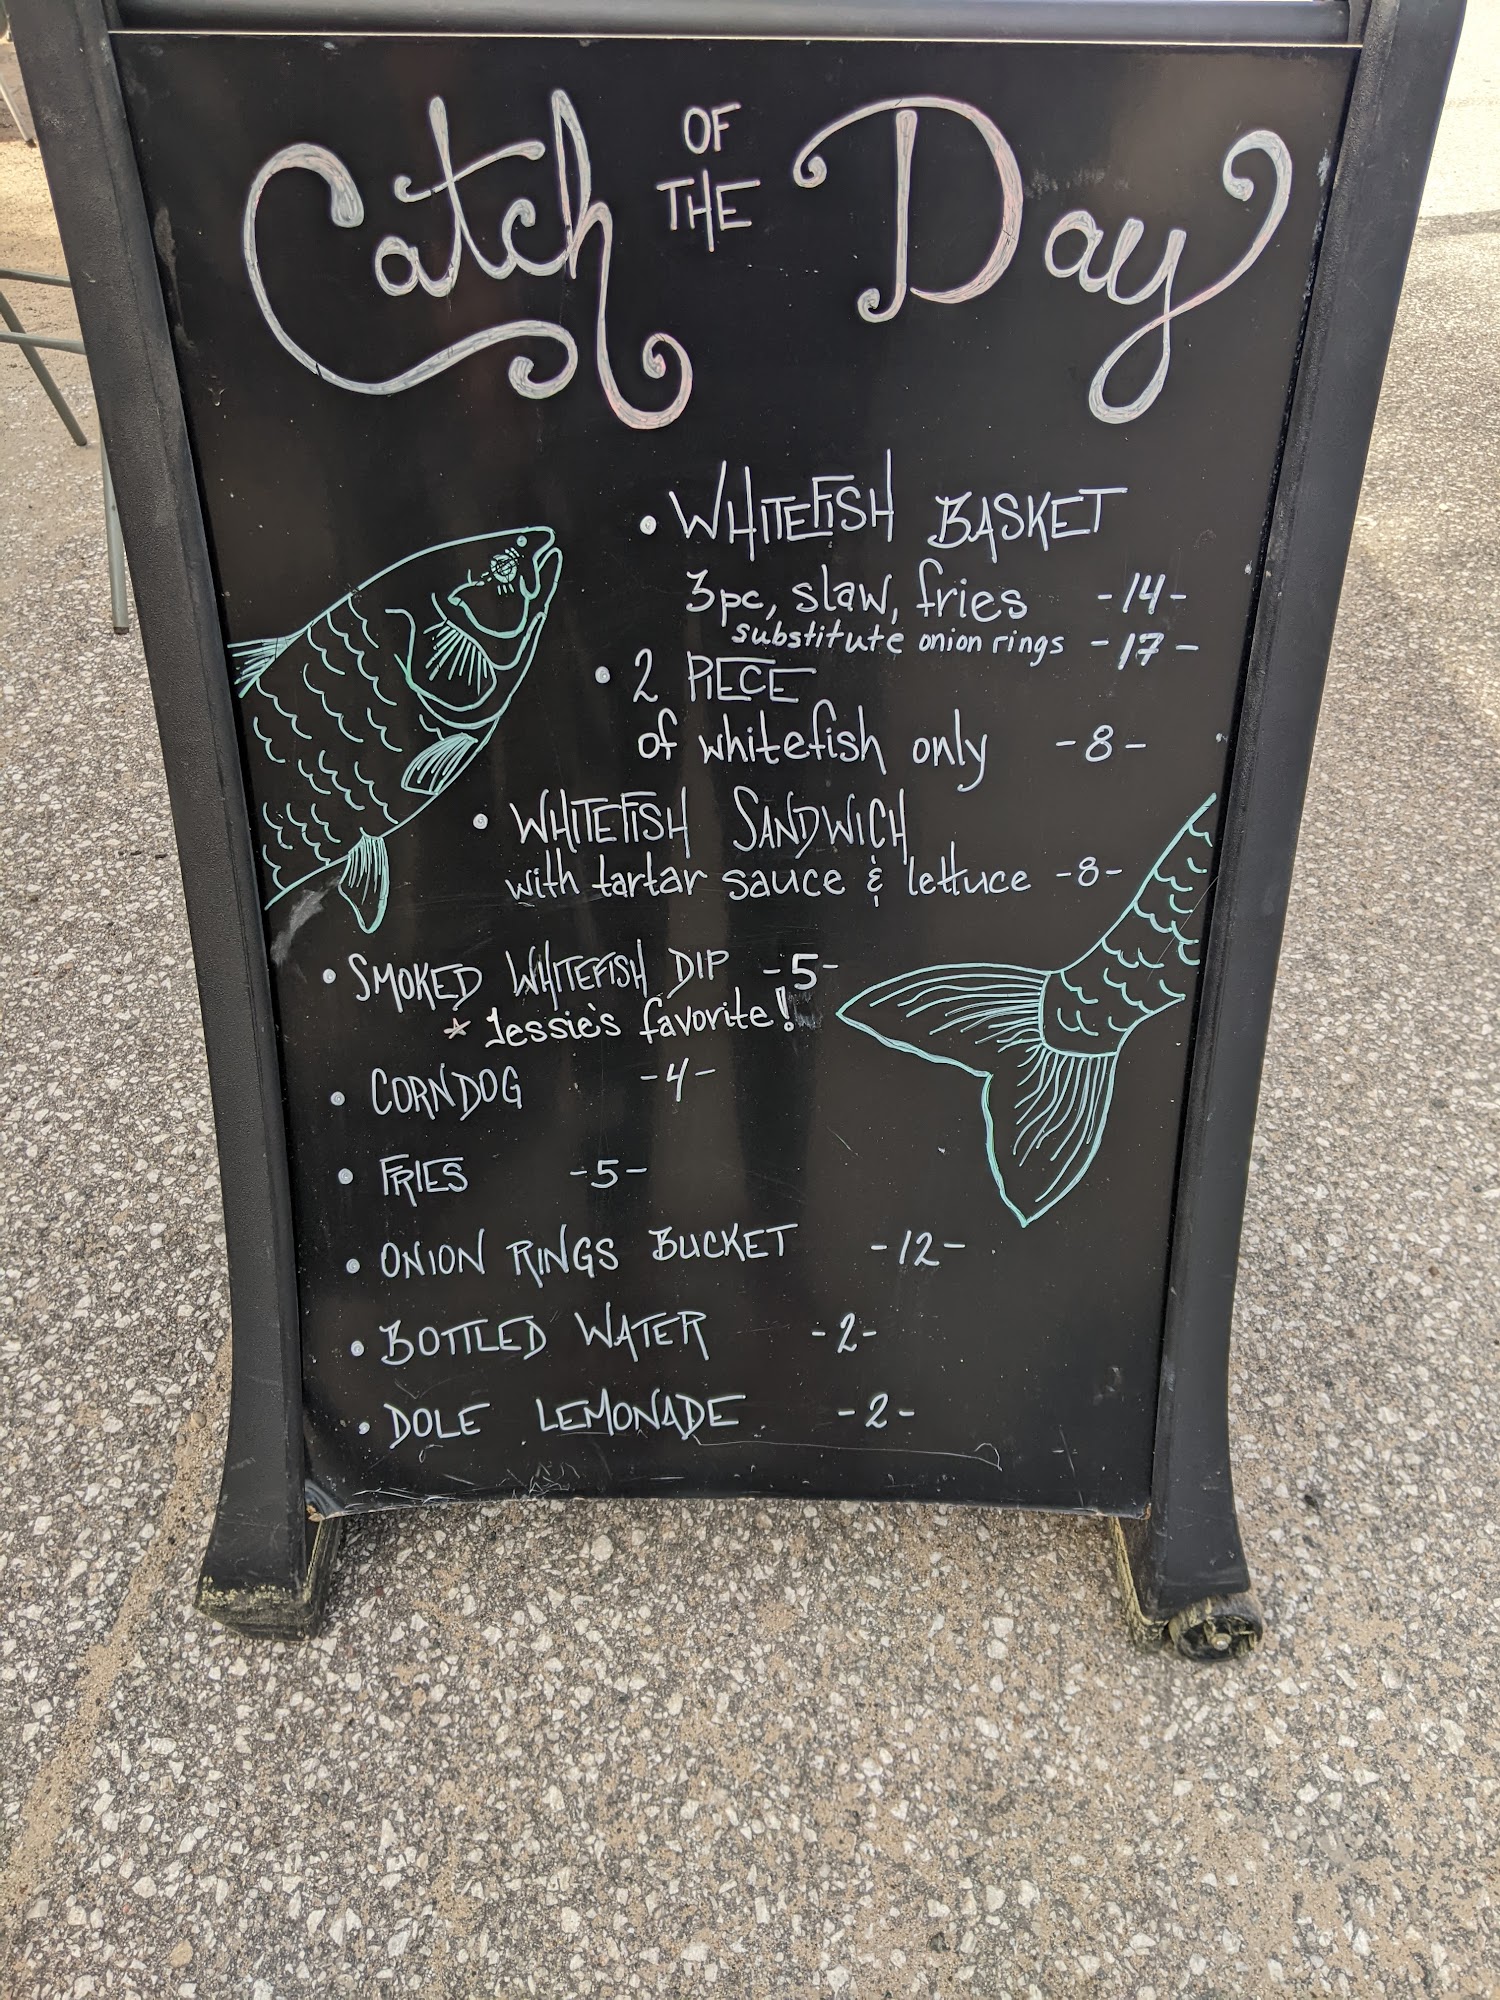 Catch OF THE Day
• WHITEFISH BASKET
3pc, slaw, fries -14-
substitute onion rings -17-
• 2 PIECE
of whitefish only -8-
• WHITEFISH SANDWICH
with tartar sauce & lettuce -8-
• SMOKED WHITEFISH DIP -5-
* Jessie's favorite!
• CORNDOG -4-
• FRIES -5-
• ONION RINGS BUCKET -12-
• BOTTLED WATER -2-
• DOLE LEMONADE -2-